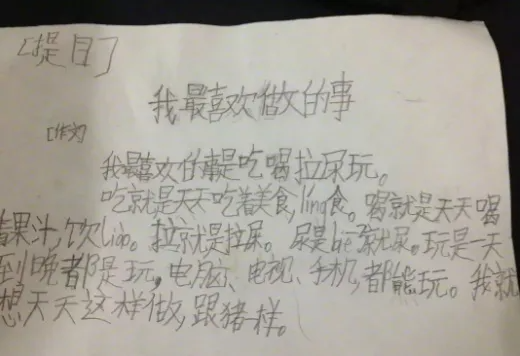 [提目]
我最喜欢做的事
[作文]
我最喜欢的事是吃喝拉尿玩。
吃就是天天吃着美食,ling食。喝就是天天喝
着果汁,饮liào。拉就是拉尿。尿是biē了就尿。玩是一天
到晚都是玩,电脑、电视、手机,都能玩。我就
想天天这样做,跟猪一样。